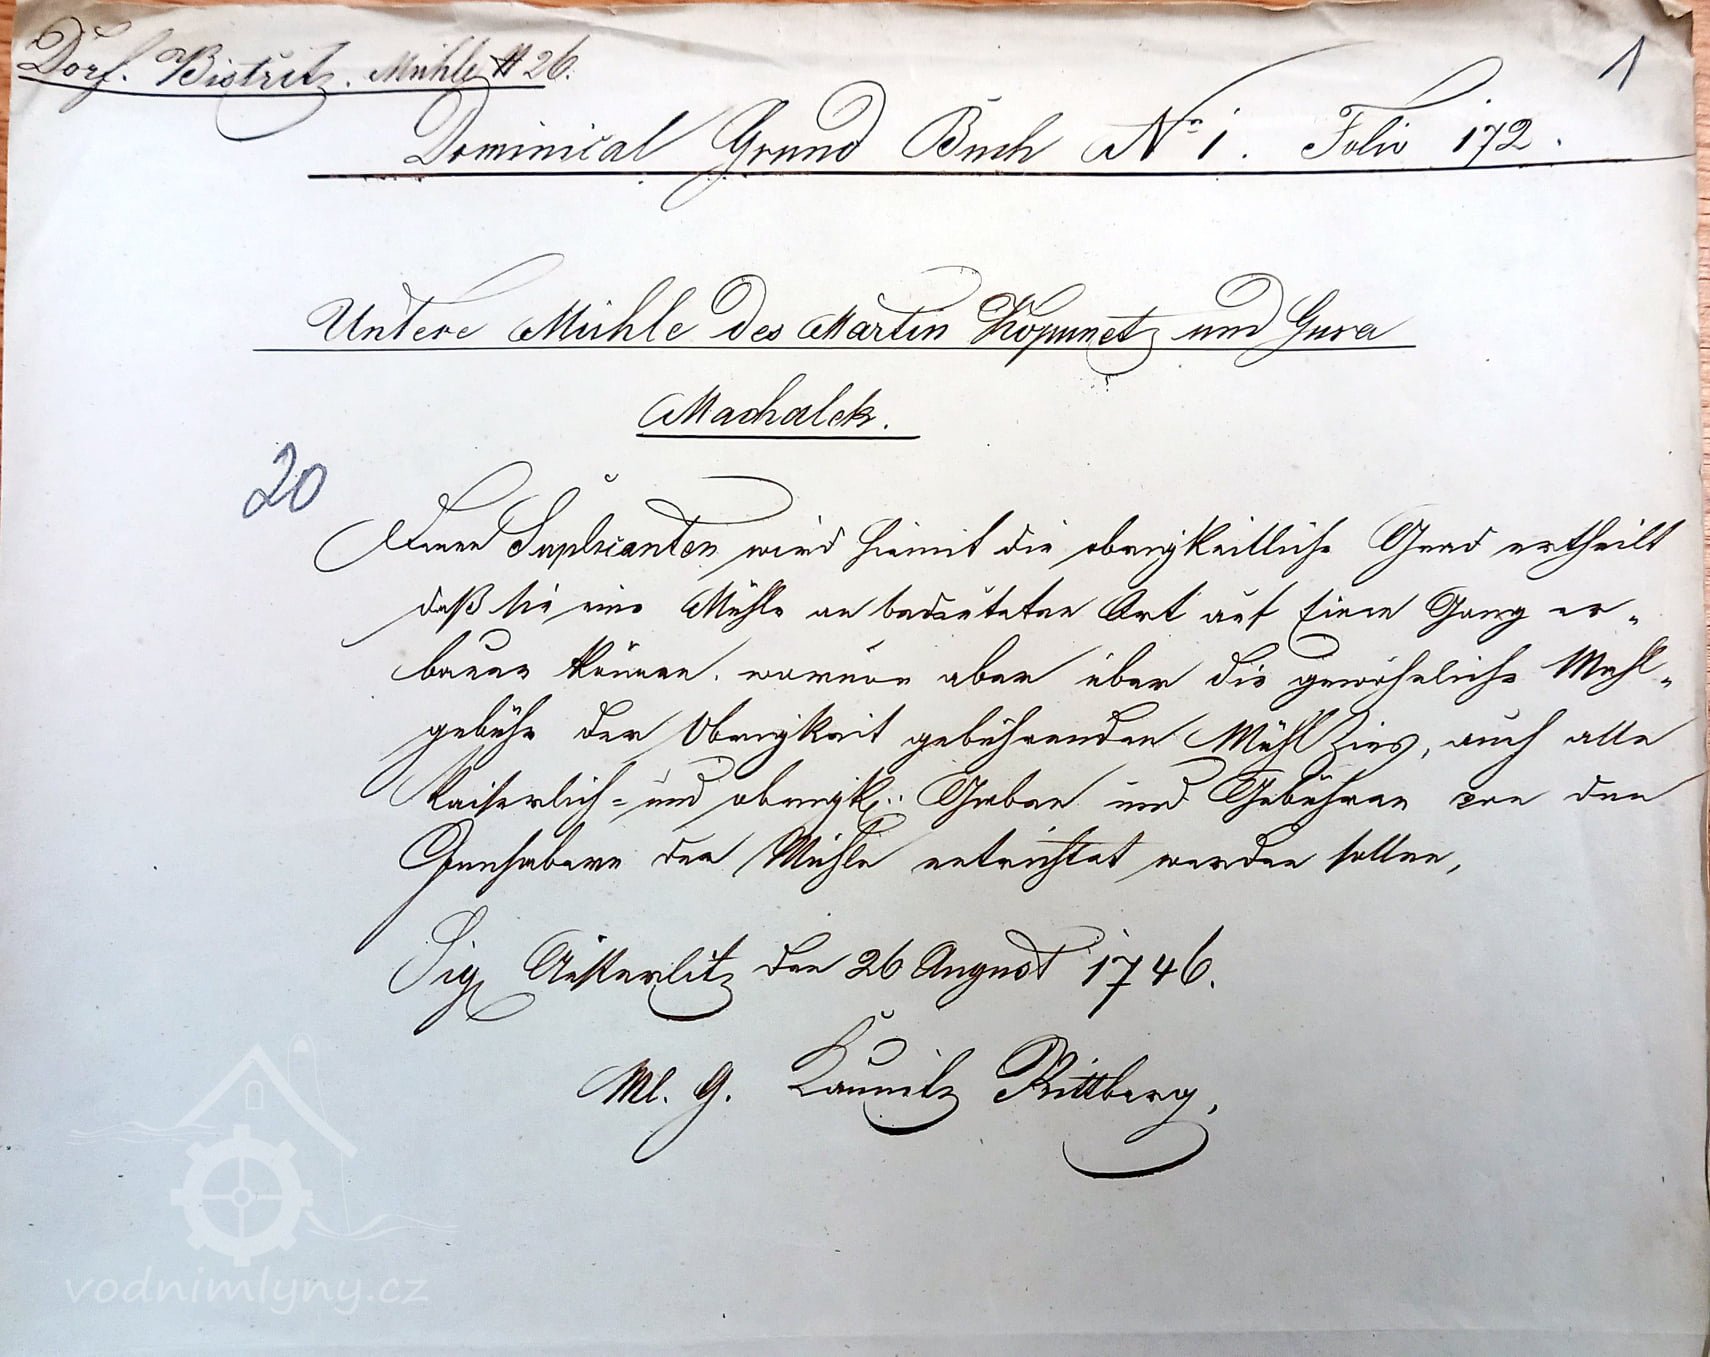 Dorf. Bistřitz. Mühle # 26.
1
Dominical Grund Buch No 1. Folio 172.
Untere Mühle des Martin Kopunetz und Gura
Machalek.
20
Denen Suplicanten wird hiemit die obrigkeitliche Gnad ertheilt
daß sie eine Mühle an bedeuteten Ort auf Einen Gang er„
bauen können. worvon aber über die gewöhnliche Mahl„
gebühr der Obrigkeit gebührenden Mühl Zins, auch alle
Kaiserlich = und obrigk: Gaben und Gebühren von den
Innhabern der Mühle entrichtet werden sollen,
Sig Austerlitz den 26 August 1746.
M. G. Kaunitz Rittberg.
vodnimlyny.cz